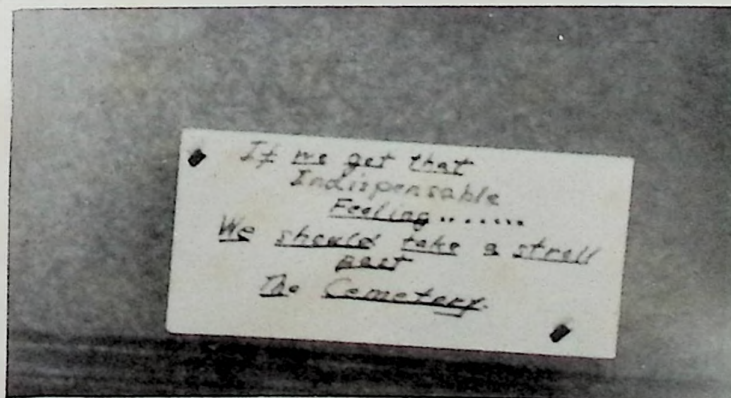 If we get that
Indispensable
Feeling.......
We should take a stroll
past
The Cemetery.